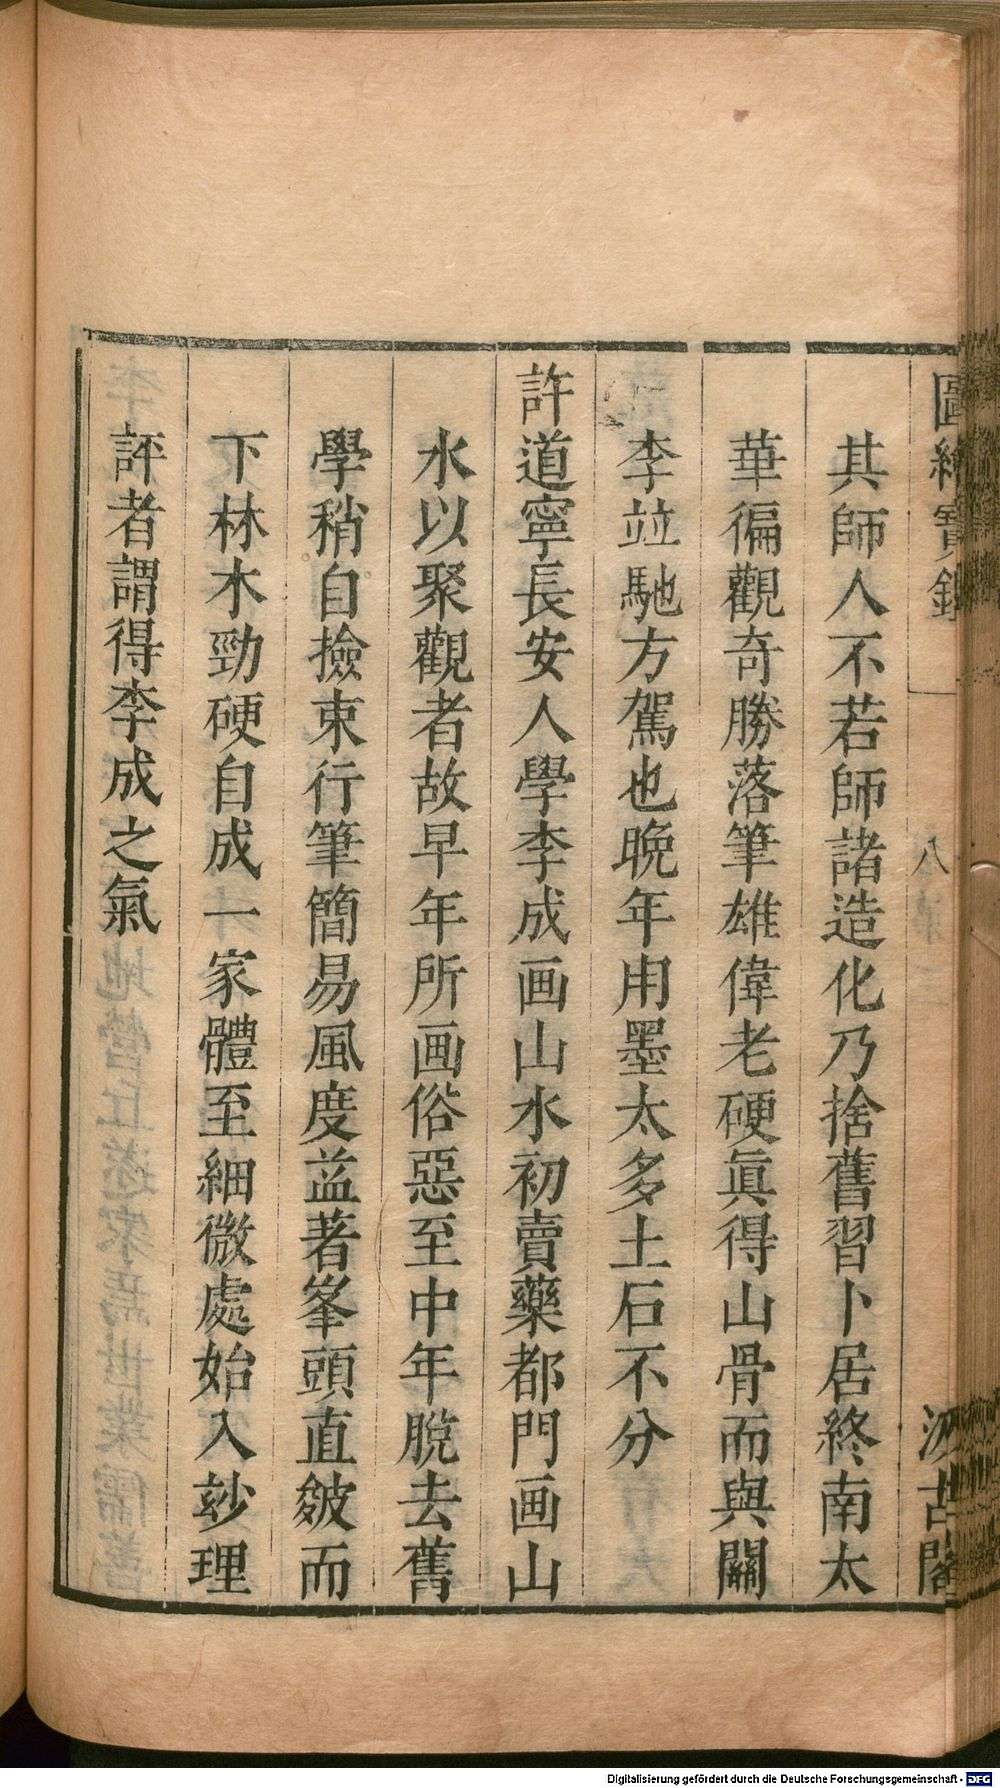 圖繪寶鑑
八
汲古閣
其師人不若師諸造化乃捨舊習卜居終南太
華徧觀奇勝落筆雄偉老硬眞得山骨而與關
李竝馳方駕也晚年用墨太多土石不分
許道寧長安人學李成画山水初賣藥都門画山
水以聚觀者故早年所画俗惡至中年脫去舊
學稍自撿束行筆簡易風度益著峯頭直皴而
下林木勁硬自成一家體至細微處始入玅理
評者謂得李成之氣
Digitalisierung gefördert durch die Deutsche Forschungsgemeinschaft - DFG